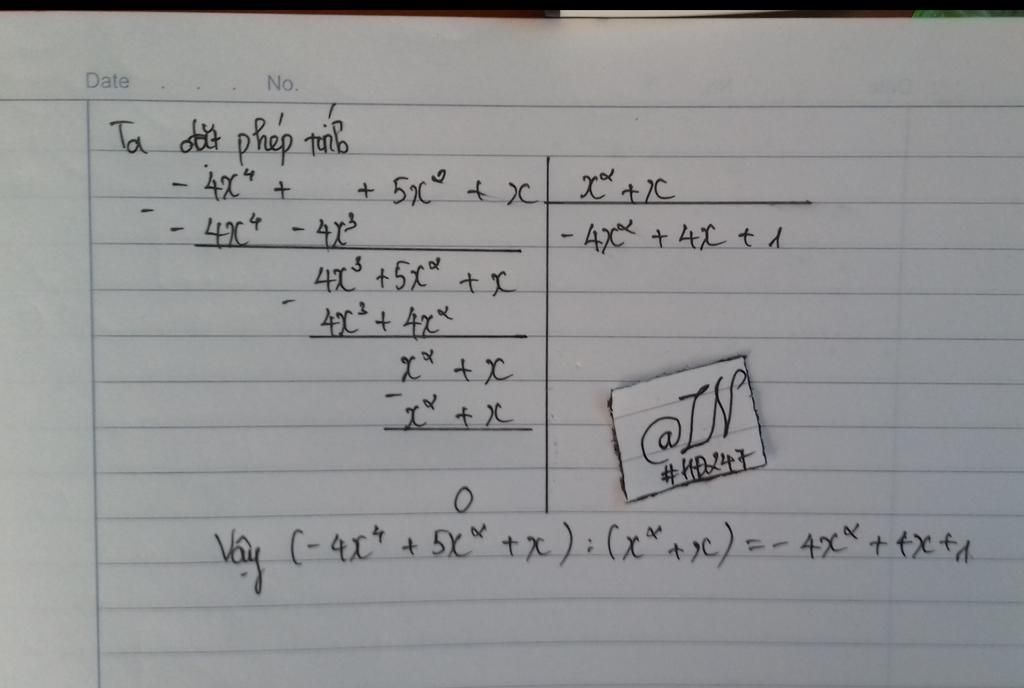 Date . . . No.
Ta đặt phép tính
- 4x⁴ + + 5x² + x | x² + x
- - 4x⁴ - 4x³ | - 4x² + 4x + 1
4x³ + 5x² + x
- 4x³ + 4x²
x² + x
- x² + x
@IN
#HĐ247
0
Vậy (- 4x⁴ + 5x² + x) : (x² + x) = - 4x² + 4x + 1